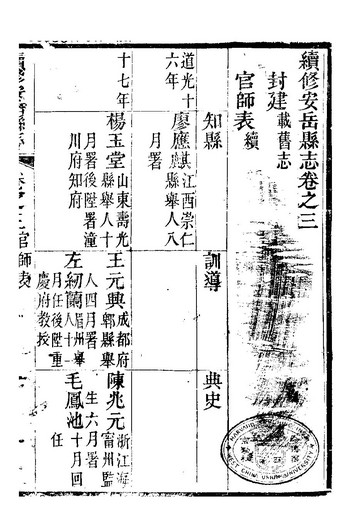 續修安岳縣志卷之三
封建載舊志
官師表續
知縣
訓導
典史
道光十六年
廖應麒江西崇仁縣舉人八月署
十七年
楊玉堂山東壽光縣舉人十月署後陞署潼川府知府
王元興成都府郫縣舉人四月署
左紉蘭眉州舉人十一月任後陞重慶府教授
陳兆元浙江海甯州監生六月署
毛鳳池十月回任
官師表